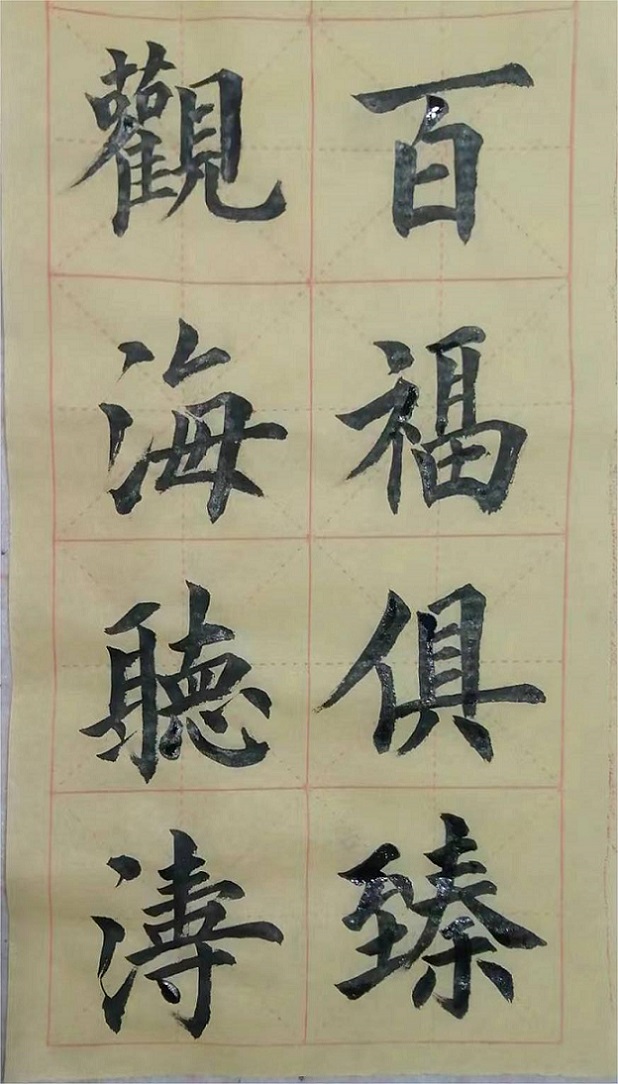 百福俱臻
觀海聽濤